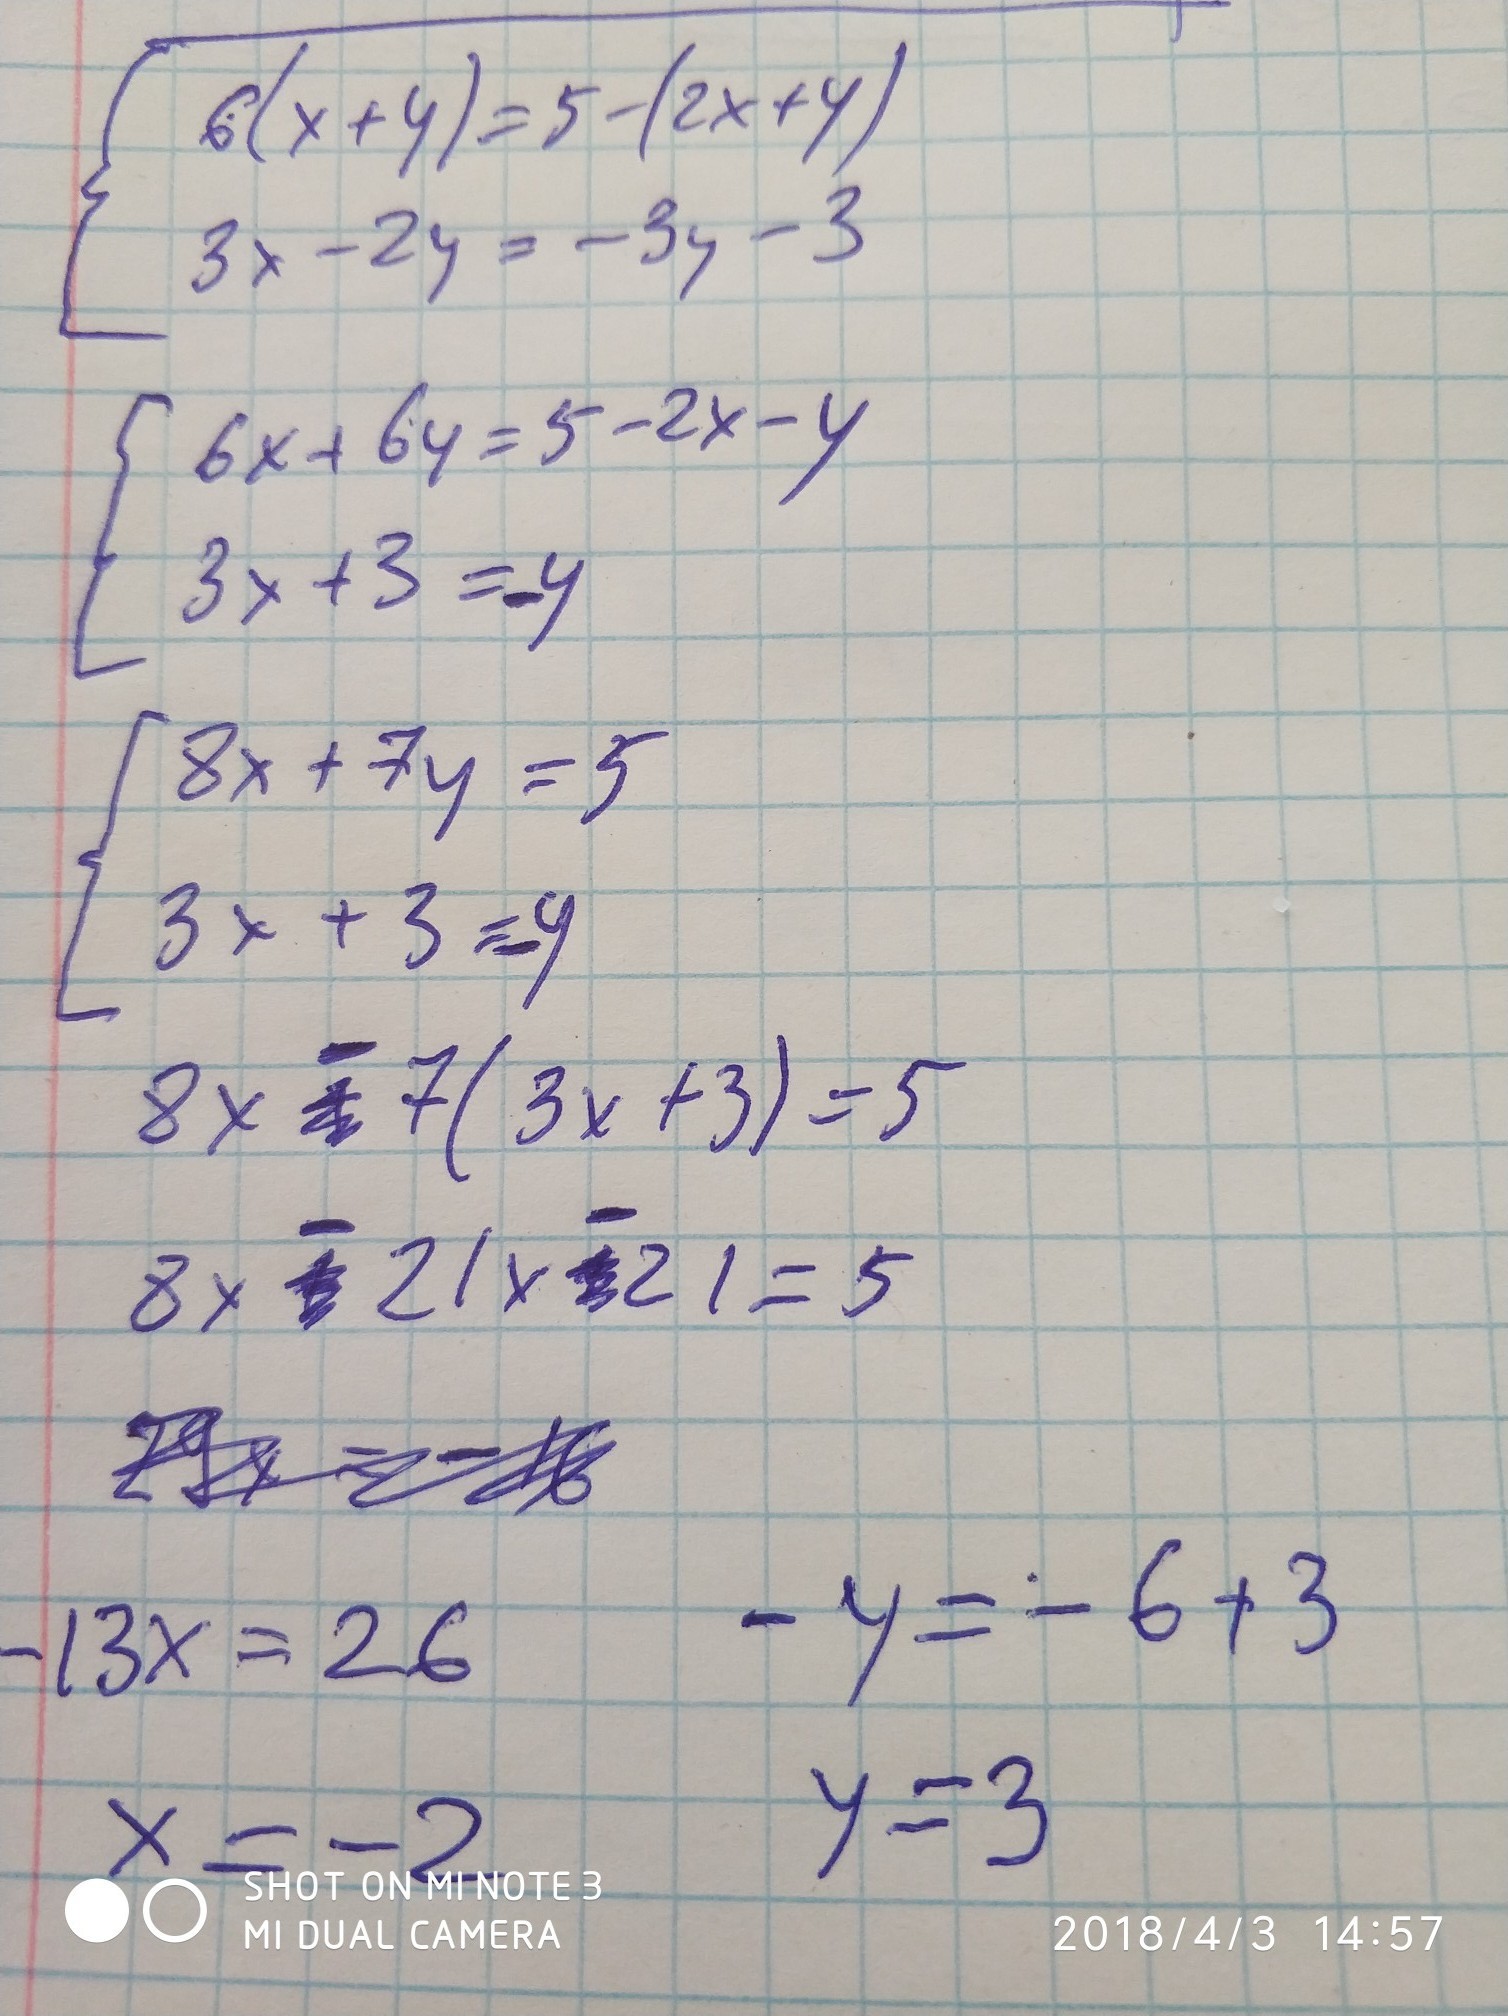 6(x+y)=5-(2x+y)
3x-2y=-3y-3
6x+6y=5-2x-y
3x+3=-y
8x+7y=5
3x+3=-y
8x-7(3x+3)=5
8x-21x-21=5
-13x=26
-y=-6+3
x=-2
y=3
SHOT ON MI NOTE 3
MI DUAL CAMERA
2018/4/3 14:57